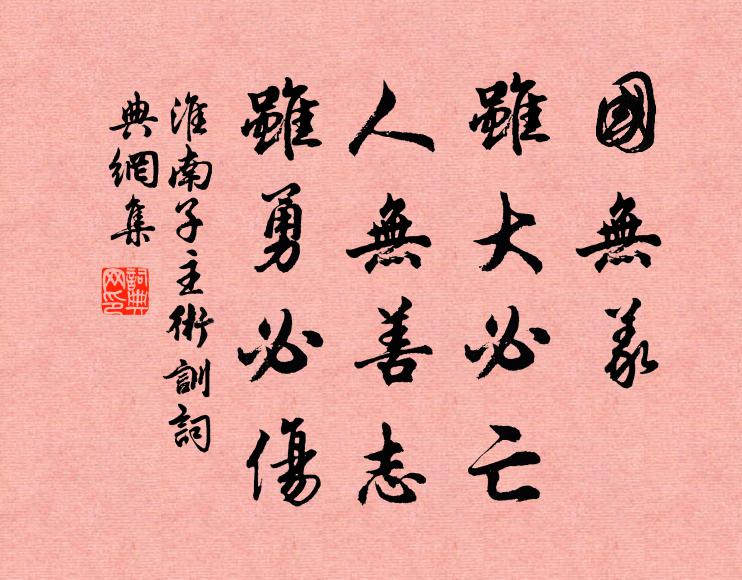 國無義
雖大必亡
人無善志
雖勇必傷
淮南子主術訓詞
典網集
詞典網印